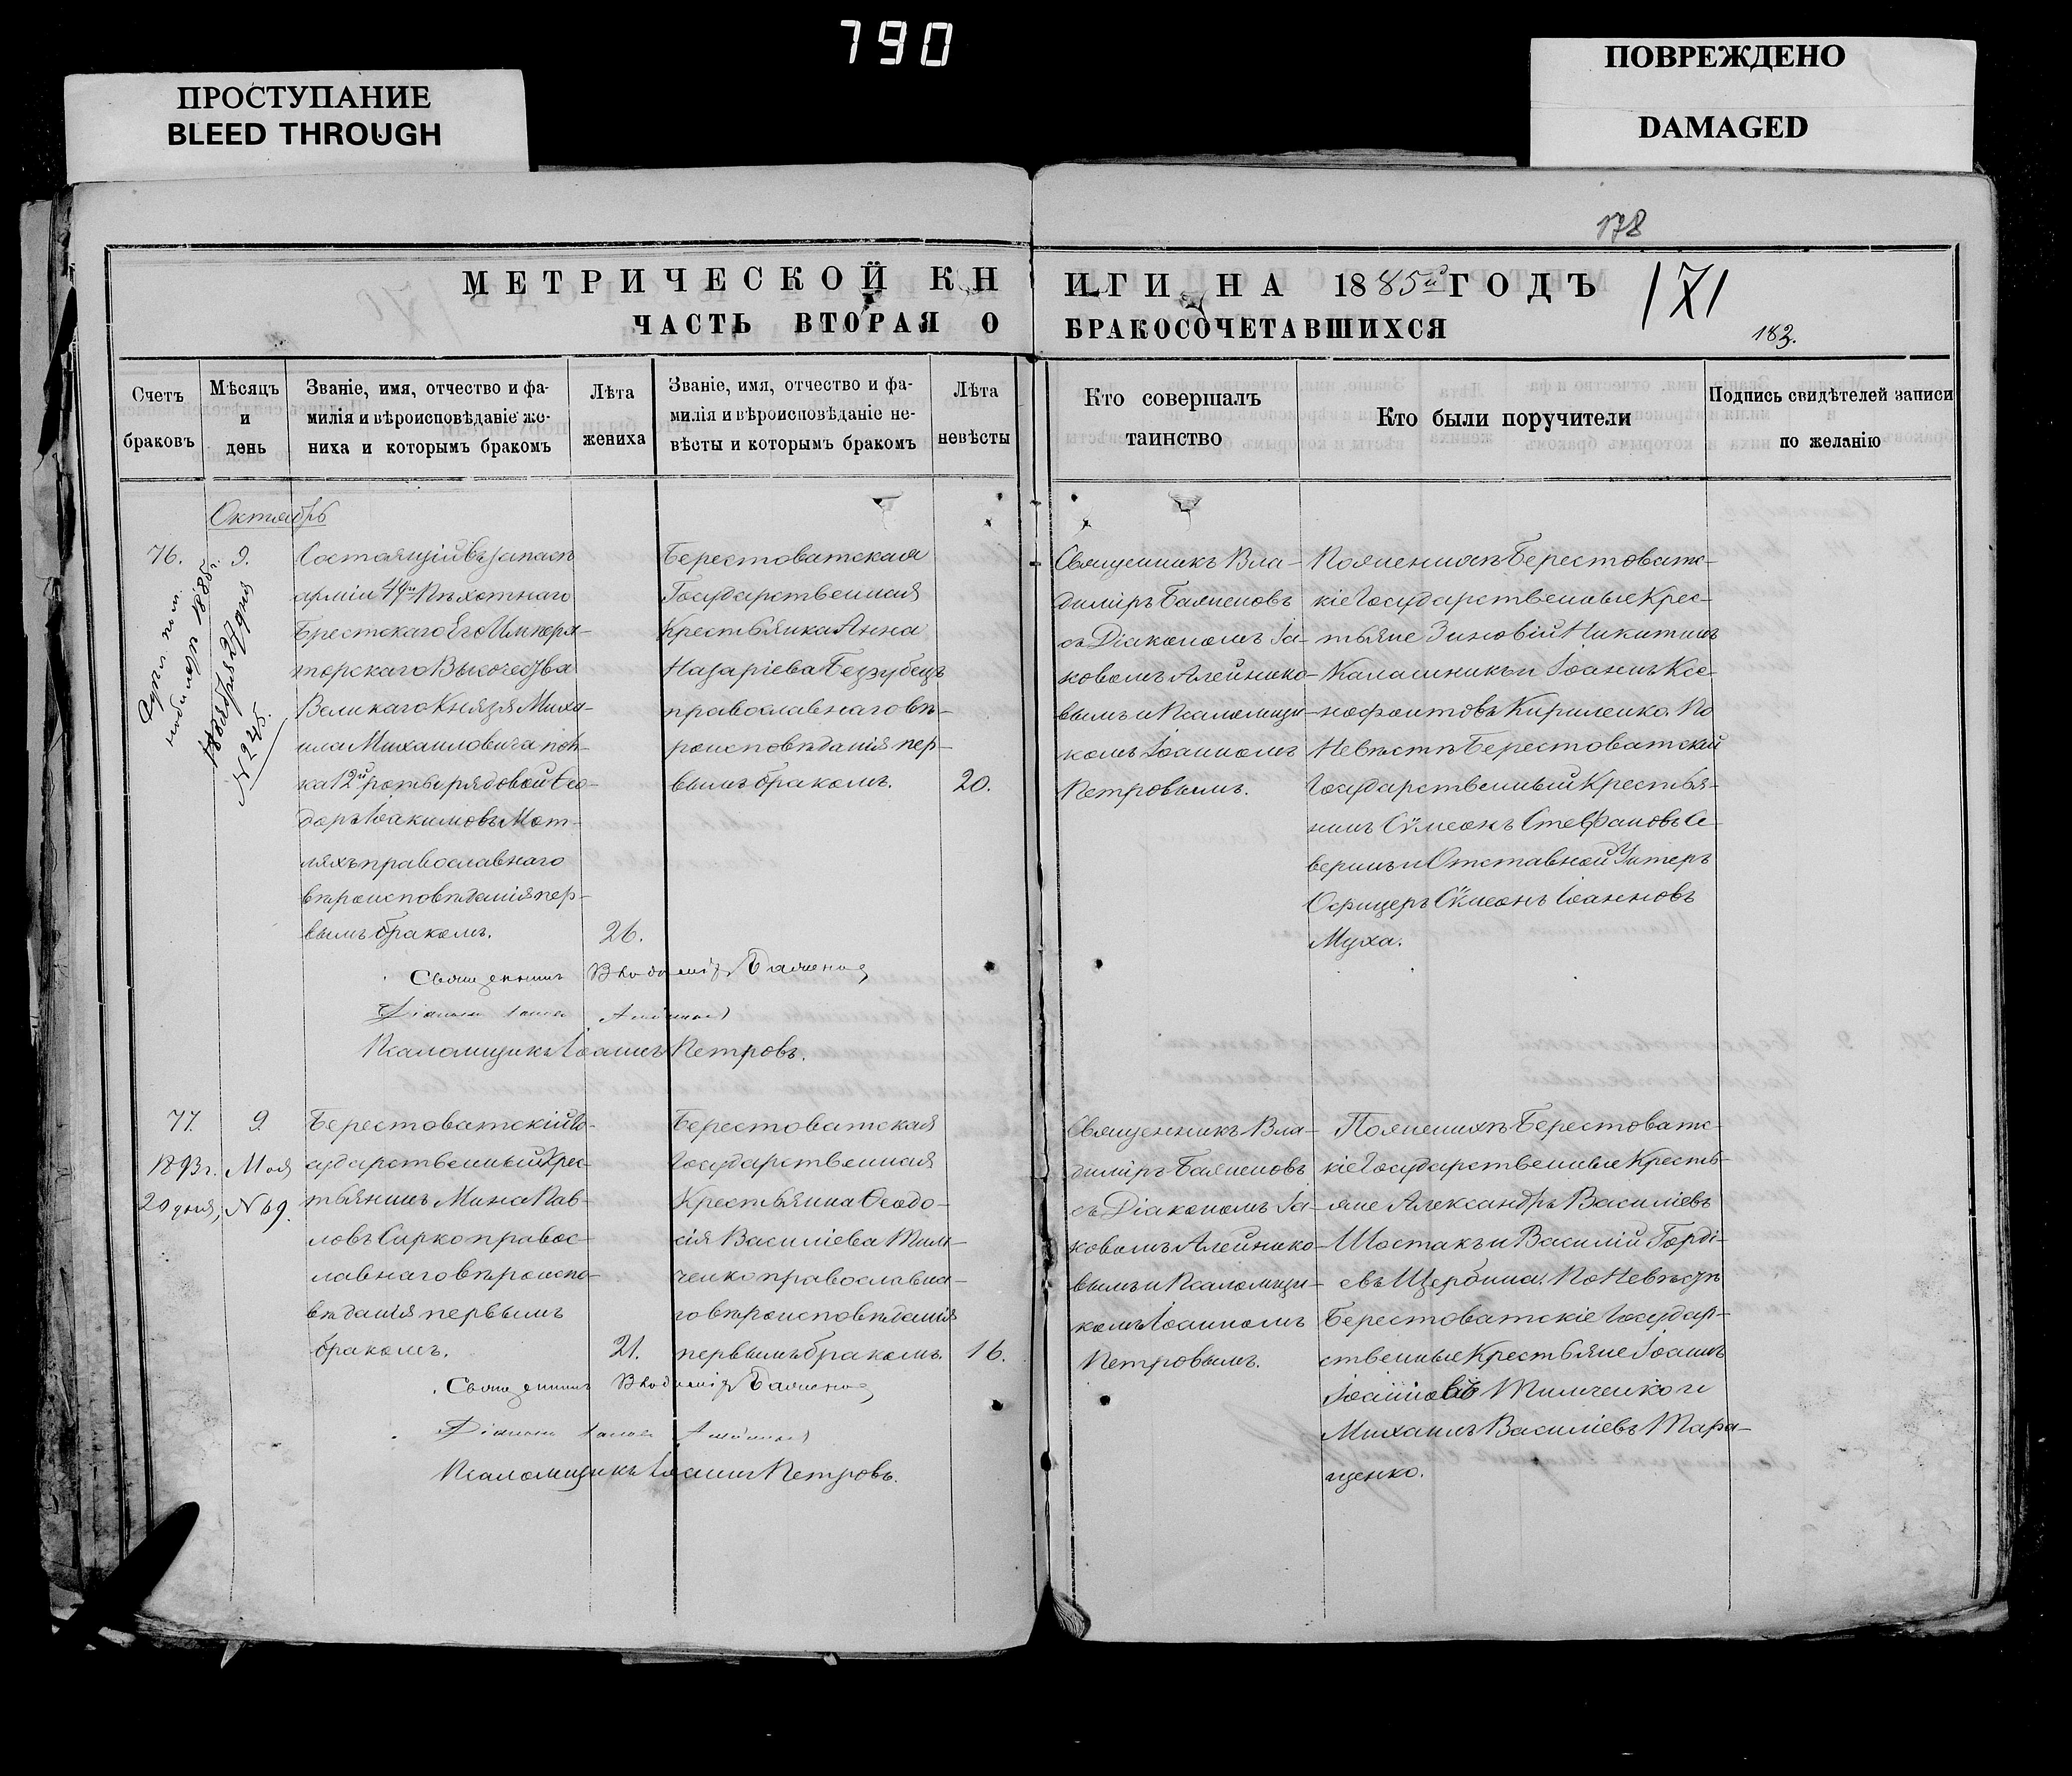 790
ПРОСТУПАНИЕ
BLEED THROUGH
ПОВРЕЖДЕНО
DAMAGED
178
МЕТРИЧЕСКОЙ КНИГИ НА 1885й ГОДЪ
171
ЧАСТЬ ВТОРАЯ О БРАКОСОЧЕТАВШИХСЯ
182.
Счетъ
браковъ
Мѣсяцъ
и
день
Званіе, имя, отчество и фа-
милія и вѣроисповѣданіе же-
ниха и которымъ бракомъ
Лѣта
жениха
Званіе, имя, отчество и фа-
милія и вѣроисповѣданіе не-
вѣсты и которымъ бракомъ
Лѣта
невѣсты
Кто совершалъ
таинство
Кто были поручители
Подпись свидѣтелей записи
по желанію
Октябрь
76.
9.
1885 г.
27 дня
N 245.
Состоящій въ запасѣ
арміи 44й Пѣхотнаго
Брестскаго Его Импера-
торскаго Высочества
Великаго Князя Миха-
ила Михаиловича пол-
ка 12й роты рядовой Ѳео-
доръ Іоакимовъ Мот-
ляхъ православнаго
вѣроисповѣданія пер-
вымъ бракомъ.
26.
Берестоватская
Государственная
Крестьянка Анна
Назаріева Беззубецъ
православнаго вѣ-
роисповѣданія пер-
вымъ бракомъ.
20.
Священникъ Вла-
диміръ Баженовъ
съ Діакономъ Іа-
ковомъ Алейнико-
вымъ и Псаломщи-
комъ Іоанномъ
Петровымъ.
По женихѣ Берестоватс-
кіе Государственные Крес-
тьяне Зиновій Никитинъ
Калашникъ и Іоаннъ Ксе-
нофонтовъ Кириленко. По
Невѣстѣ Берестоватскій
Государственный Крестья-
нинъ Сѵмеонъ Стефановъ Се-
веринъ и Отставной Унтеръ
Офицеръ Сѵмеонъ Іоанновъ
Муха.
Священникъ Владиміръ Баженовъ
Діаконъ Іаковъ Алейниковъ
Псаломщикъ Іоаннъ Петровъ.
77.
9.
1893 г. Мая
20 дня, N 69.
Берестоватскій Го-
сударственный Крес-
тьянинъ Мина Пав-
ловъ Сирко правос-
лавнаго вѣроиспо-
вѣданія первымъ
бракомъ.
21.
Берестоватская
Государственная
Крестьянка Ѳеодо-
сія Василіева Тим-
ченко православна-
го вѣроисповѣданія
первымъ бракомъ.
16.
Священникъ Вла-
диміръ Баженовъ
съ Діакономъ Іа-
ковомъ Алейнико-
вымъ и Псаломщи-
комъ Іоанномъ
Петровымъ.
По женихѣ Берестоватс-
кіе Государственные Кресть-
яне Александръ Василіевъ
Шостакъ и Василій Горді-
евъ Щербина. По Невѣстѣ
Берестоватскіе Государ-
ственные Крестьяне Іоаннъ
Іоанновъ Тимченко и
Михаилъ Василіевъ Тара-
щенко.
Священникъ Владиміръ Баженовъ
Діаконъ Іаковъ Алейниковъ
Псаломщикъ Іоаннъ Петровъ.